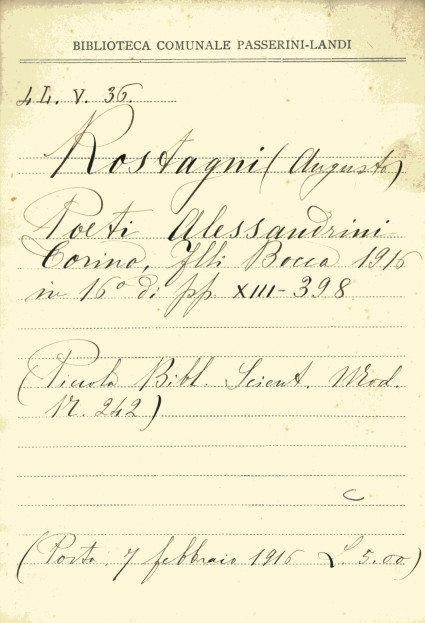 BIBLIOTECA COMUNALE PASSERINI-LANDI
4 L. V. 36.
Rostagni (Augusto)
Poeti Alessandrini
Torino, Flli Bocca 1916
in 16° di pp XIII-398
(Piccola Bibl. Scient. Mod.
N. 242)
(Porta, 7 febbraio 1916 L. 5.00)